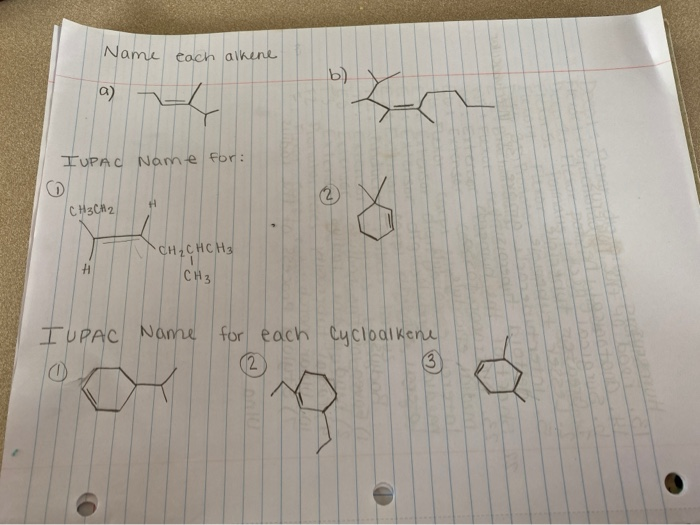 Name each alkene
a)
b)
IUPAC Name for:
①
②
CH3CH2
H
H
CH2CHCH3
CH3
IUPAC Name for each Cycloalkene
①
②
③